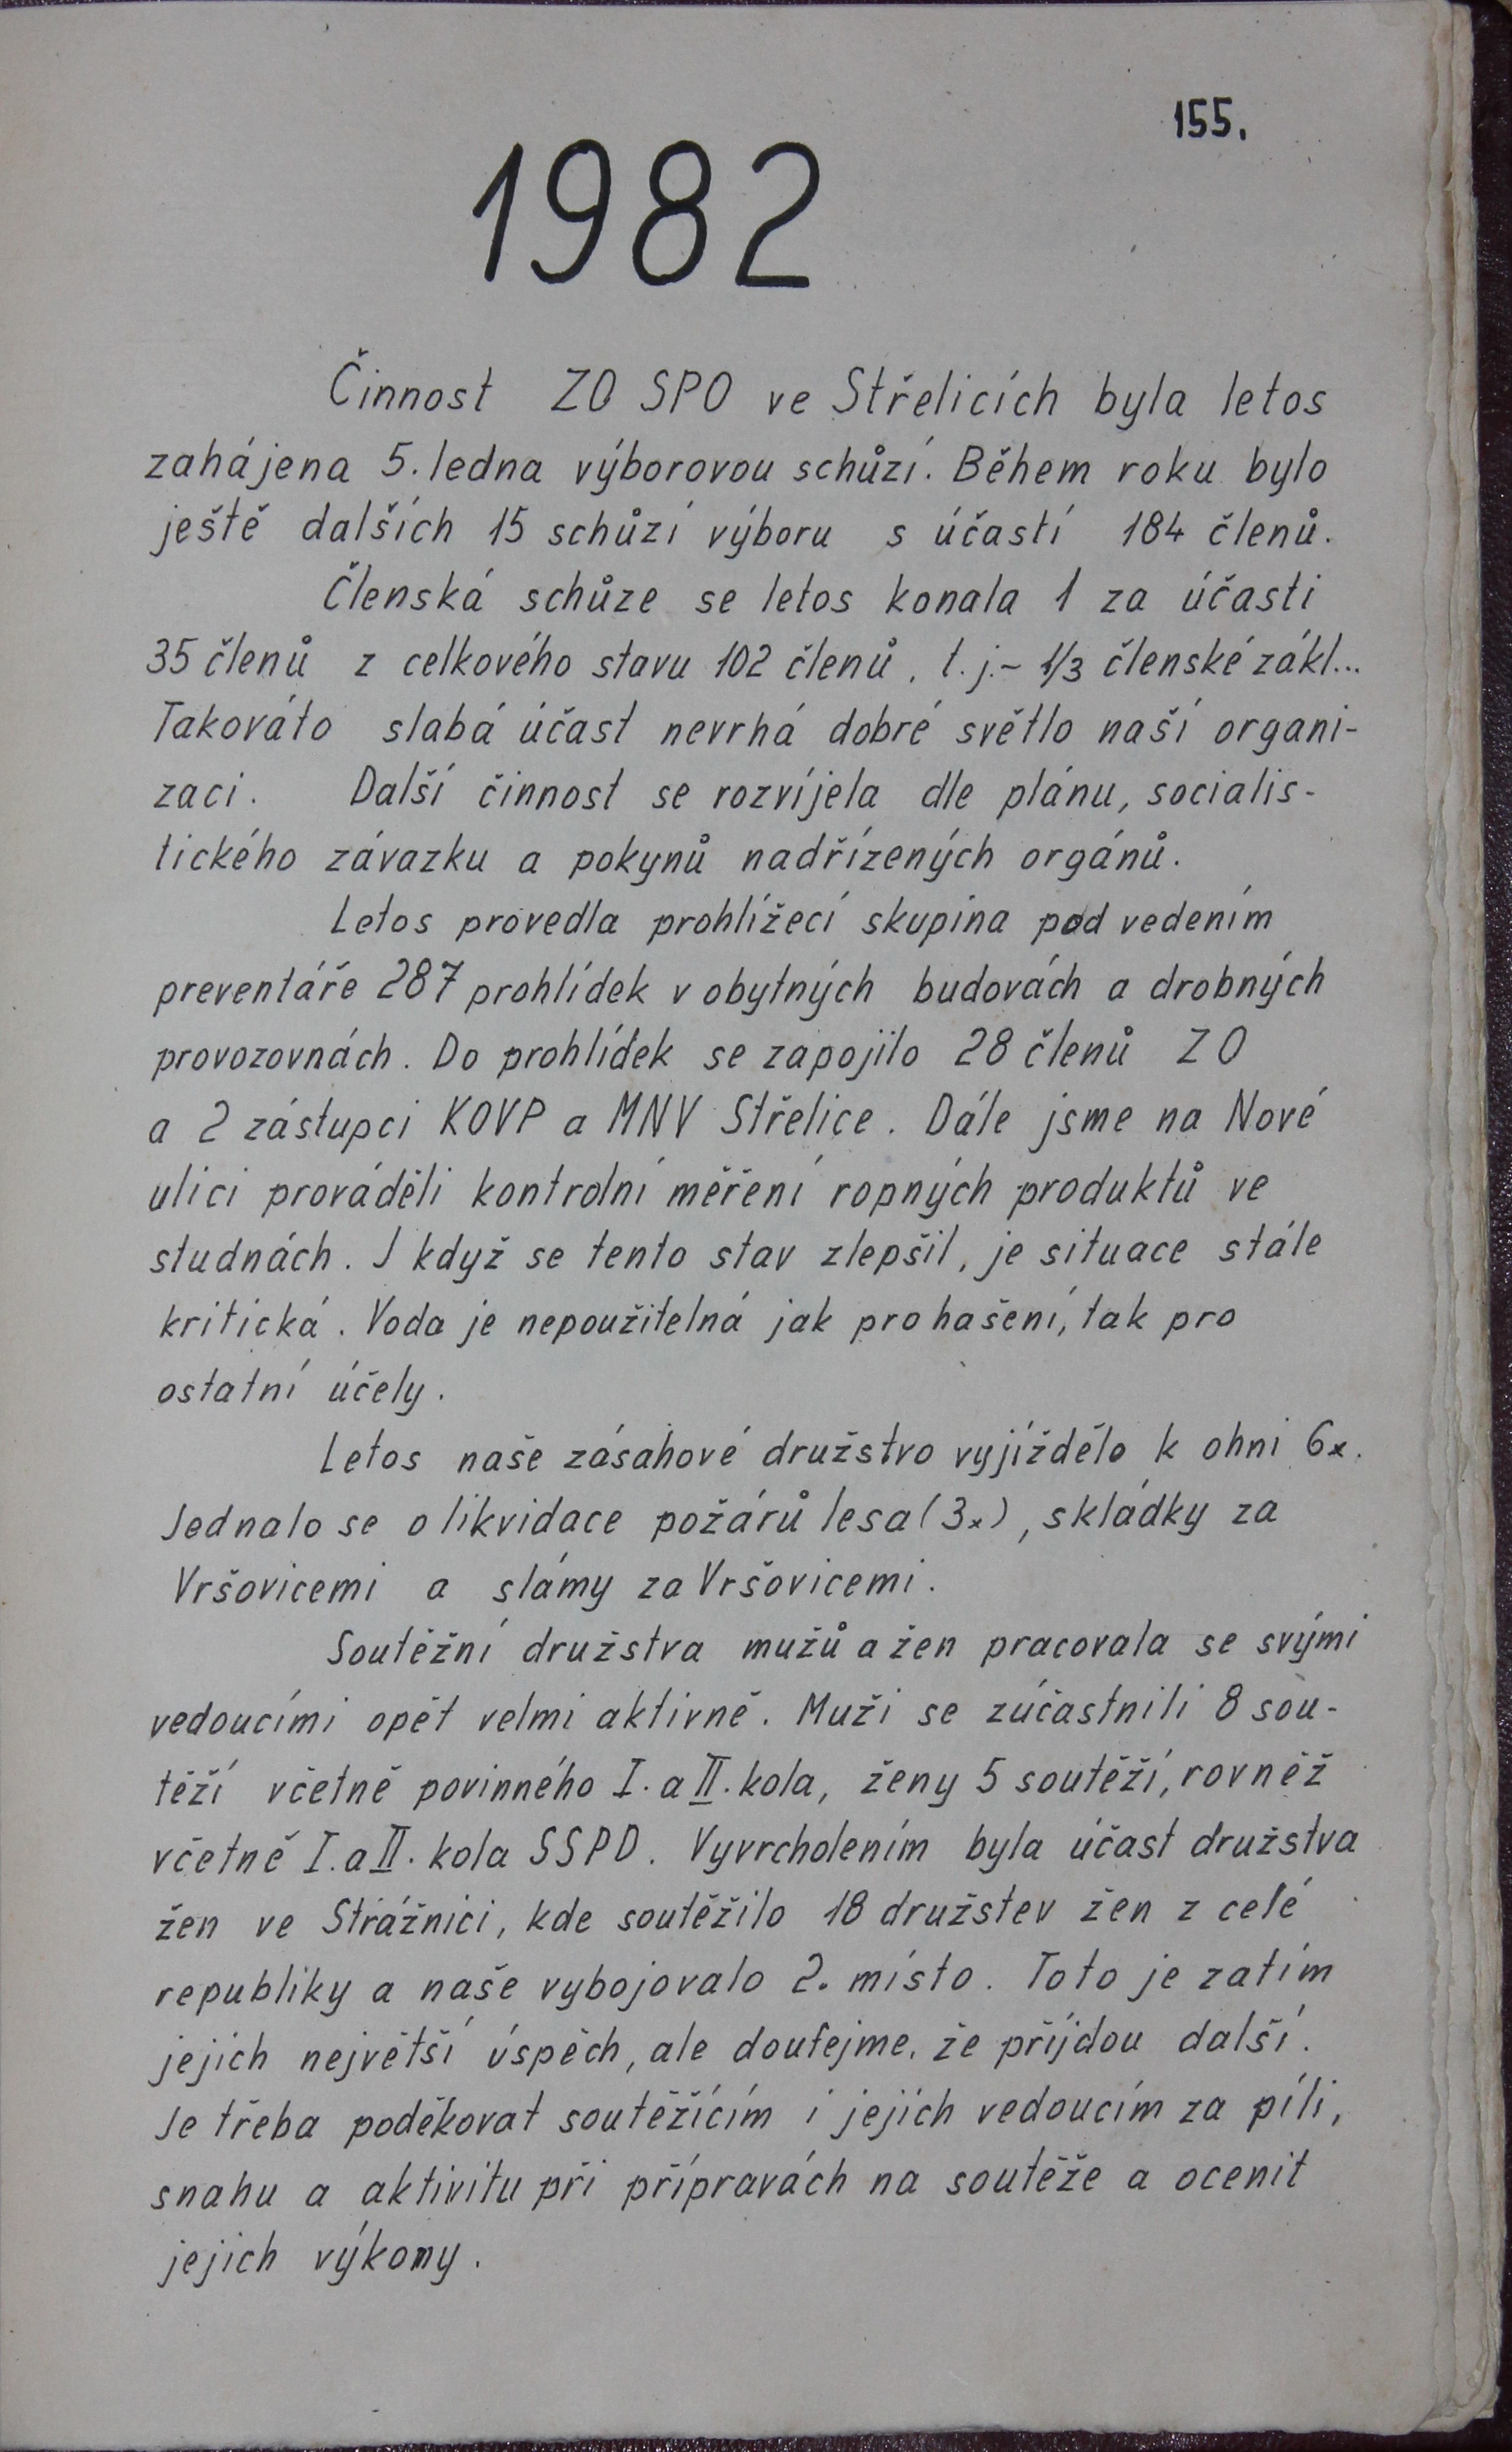 155.
1982
Činnost ZO SPO ve Střelicích byla letos
zahájena 5. ledna výborovou schůzí. Během roku bylo
ještě dalších 15 schůzí výboru s účastí 184 členů.
Členská schůze se letos konala 1 za účasti
35 členů z celkového stavu 102 členů, t.j.~ 1/3 členské zákl...
Takováto slabá účast nevrhá dobré světlo naší organi-
zaci. Další činnost se rozvíjela dle plánu, socialis-
tického závazku a pokynů nadřízených orgánů.
Letos provedla prohlížecí skupina pod vedením
preventáře 287 prohlídek v obytných budovách a drobných
provozovnách. Do prohlídek se zapojilo 28 členů ZO
a 2 zástupci KOVP a MNV Střelice. Dále jsme na Nové
ulici prováděli kontrolní měření ropných produktů ve
studnách. I když se tento stav zlepšil, je situace stále
kritická. Voda je nepoužitelná jak pro hašení, tak pro
ostatní účely.
Letos naše zásahové družstvo vyjíždělo k ohni 6x.
Jednalo se o likvidace požárů lesa (3x), skládky za
Vršovicemi a slámy za Vršovicemi.
Soutěžní družstva mužů a žen pracovala se svými
vedoucími opět velmi aktivně. Muži se zúčastnili 8 sou-
těží včetně povinného I. a II. kola, ženy 5 soutěží, rovněž
včetně I. a II. kola SSPD. Vyvrcholením byla účast družstva
žen ve Strážnici, kde soutěžilo 18 družstev žen z celé
republiky a naše vybojovalo 2. místo. Toto je zatím
jejich největší úspěch, ale doufejme, že příjdou další.
Je třeba poděkovat soutěžícím i jejich vedoucím za píli,
snahu a aktivitu při přípravách na soutěže a ocenit
jejich výkony.